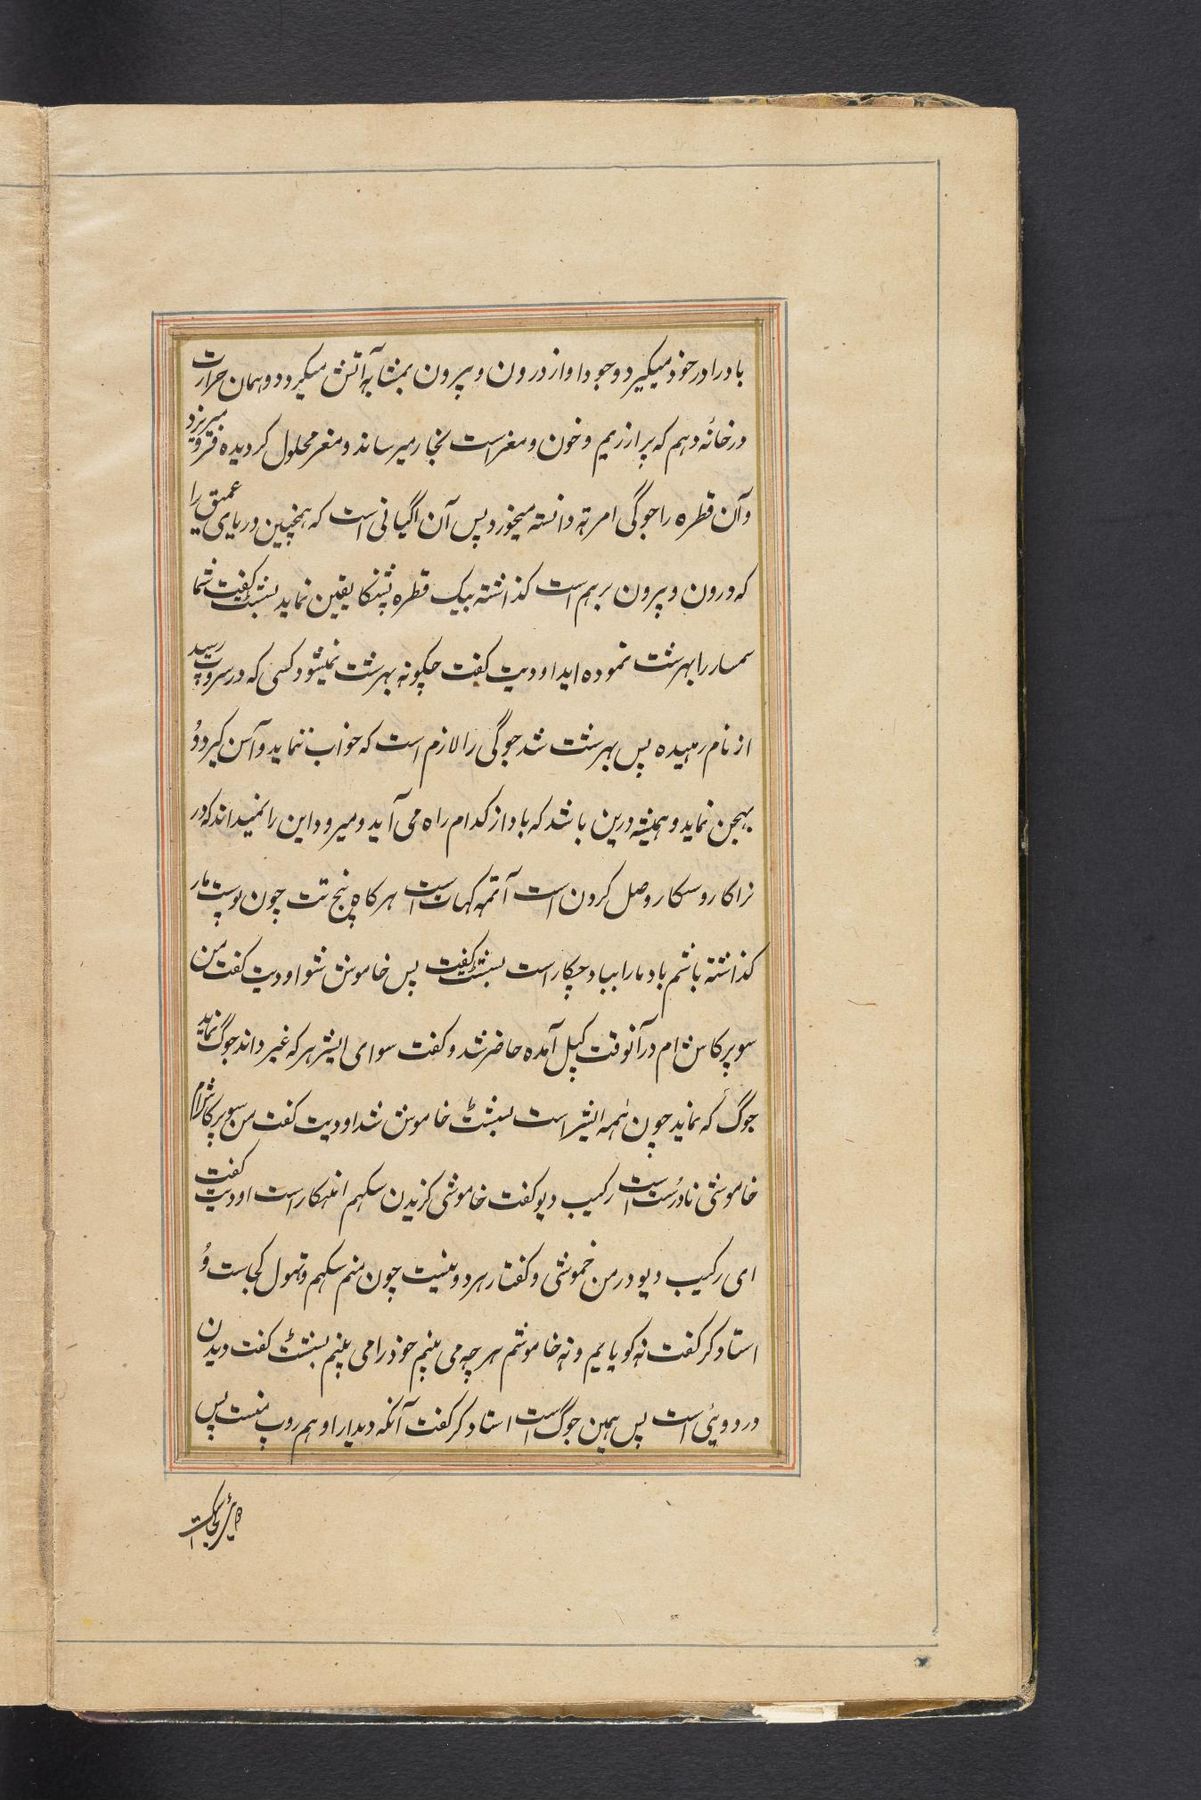 باد را در خود میکیرد و وجود او از درون و بیرون بمثابه آتش میکیرد و همان حرارت
در خانه دهم که پر از ریم و خون و مغز است بخار میرساند و مغز محلول کردیده فرو میریزد
و آن قطره را جوگی امرته دانسته میخورد پس آن اگیانی است که همچنین دریای عمیق را
که درون و بیرون برهم است کذاشته بیک قطره یقین نماید بسشت گفت شما
سمار را بهرشت نموده اید اودیت گفت چکونه بهرشت نمیشود کسی که در سروپ رسید
از نام رمیده پس بهرشت شد جوگی را لازم است که خواب ننماید و آسن کیرد و
بهجن نماید و همیشه درین باشد که باد از کدام راه می آید و میرود این را نمیداند که در
نراکار و سکار وصل کردن است آتمه کهات است هرکاه پنج تت چون پوست مار
کذاشته باشم باد مارا بباد چکار است بسشت گفت پس خاموش شو اودیت گفت من
سوپرکاش ام در آنوقت کپل آمده حاضر شد و گفت سوای ایشر هر که غیر داند جوگ نماید
جوگ که نماید چون همه ایشر است بسشت خاموش شد اودیت گفت من سوپرکاش ام
خاموشی نادرست است رکهب دیو گفت خاموشی کزیدن سکهم اهنکار است اودیت گفت
ای رکهب دیو در من خموشی و گفتار هر دو نیست چون منم سکهم و تهول کجاست و
استاد کر گفت نه کویایم و نه خاموشم هر چه می بینم خود را می بینم بسشت گفت دیدن
در دویی است پس همین جوگ است استاد کر گفت آنکه دیدار او هم روپ منست پس